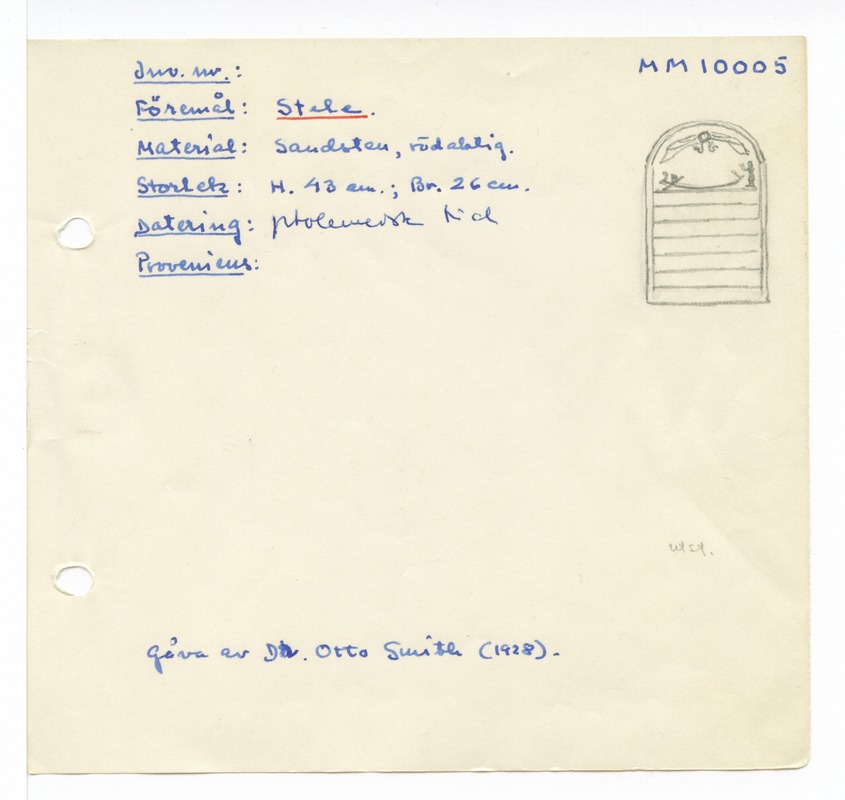 Inv. nr.:
MM 10005
Föremål: Stele.
Material: Sandsten, rödaktig.
Storlek: H. 43 cm.; Br. 26 cm.
Datering: ptolemeisk tid
Proveniens:
Gåva av Dr. Otto Smith (1928).